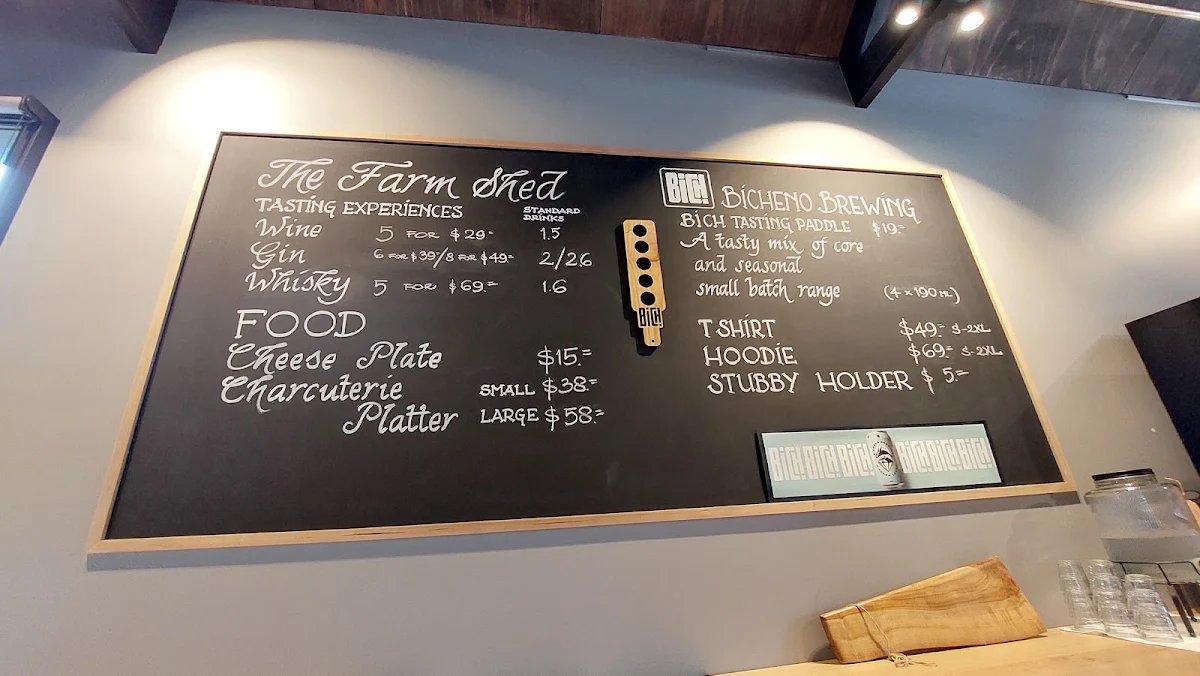 The Farm Shed
TASTING EXPERIENCES STANDARD DRINKS
Wine 5 FOR $29.- 1.5
Gin 6 FOR $39.-/8 FOR $49.- 2/2.6
Whisky 5 FOR $69.= 1.6
FOOD
Cheese Plate $15.=
Charcuterie SMALL $38.=
Platter LARGE $58.=
BiCH!
BICHENO BREWING
BICH TASTING PADDLE $19.=
A tasty mix of core
and seasonal
small batch range (4 x 190 ML)
T SHIRT $49.= S-2XL
HOODIE $69.= S-2XL
STUBBY HOLDER $5.=
BiCH!
BiCH! BiCH! BiCH! BiCH! BiCH! BiCH!